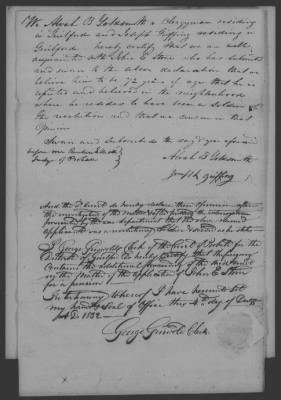 We Alvah B Goldsmith a Clergyman residing
in Guilford and Joseph Griffing residing in
Guilford hereby certify that we are well
acquainted with John E Stone who has subscribed
and sworn to the above declaration that we
believe him to be 72 years of age that he is
reputed and believed in the neighbourhood
where he resides to have been a soldier in
the revolution and that we concur in that
Opinion
Sworn and subscribed the day & year aforesaid
before me
Judge of Probate
Alvah B Goldsmith
Joseph Griffing
And the Court do hereby declare their opinion after
the investigation of the matter & after putting the interrogatories
prescribed by the war department that the above named
applicant was a revolutionary soldier & served as he states
I George Griswold Clerk of the Court of Probate for the
District of Guilford do hereby certify that the foregoing
contains the original proceedings of the said Court
in the Matter of the application of John E Stone
for a pension
In testimony whereof I have hereunto set
my hand & seal of Office this 4th day of
A D 1832
George Griswold Clerk